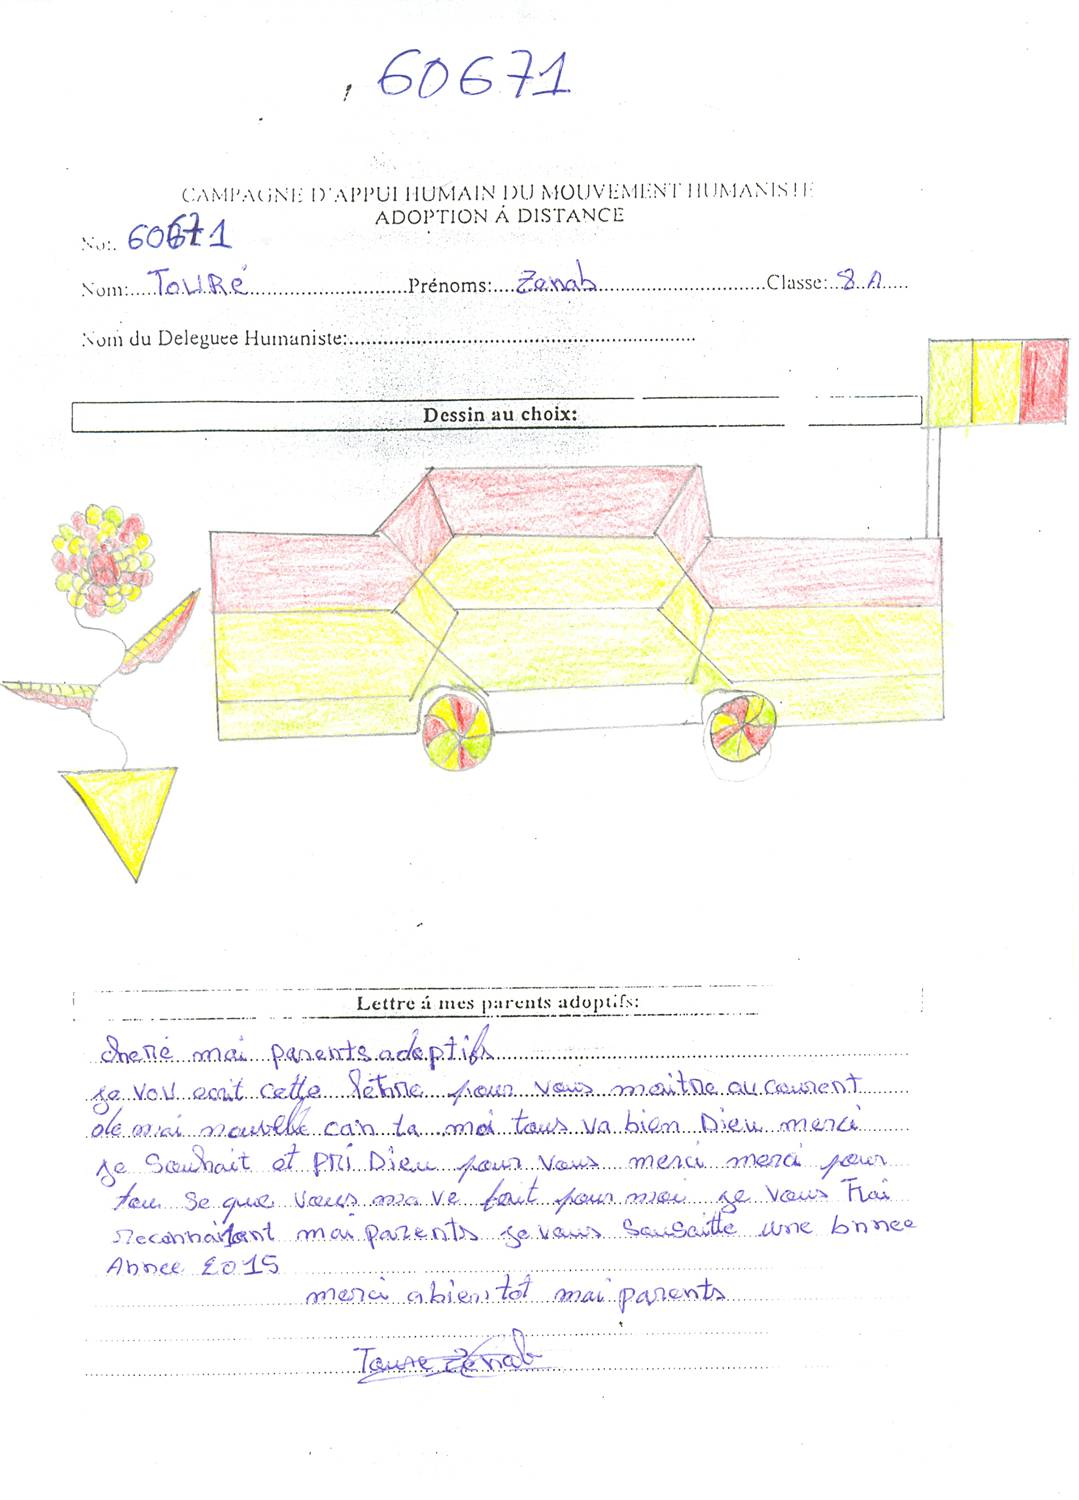 60671
CAMPAGNE D'APPUI HUMAIN DU MOUVEMENT HUMANISTE
ADOPTION Á DISTANCE
No:. 60671
Nom:....TOURé....Prénoms:....Zenab....Classe:..8 A....
Nom du Deleguee Humaniste:....
Dessin au choix:
Lettre á mes parents adoptifs:
cherie mai parents adoptifs
je vou ecrit cette letnre pour vous maitre au courent
de mai nouvelle can ta moi tous va bien Dieu merci
je Souhait et PRi Dieu pour vous merci merci pour
tou se que vous ma ve fait pour moi je vous
Reconnaitant mai parents je vous Sousaitte une bnnee
Annee 2015
merci a bien tot mai parents
Toure Zenab